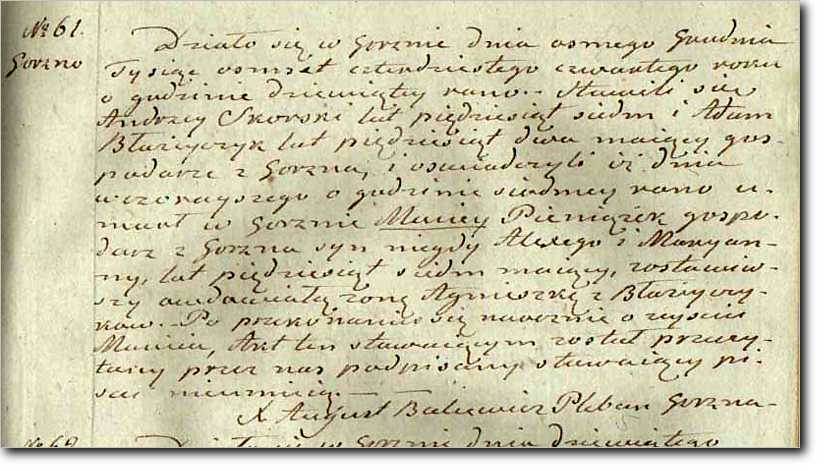 No 61.
Gorzno
Działo się w Gorznie dnia osmego Grudnia
Tysiąc osmset czterdziestego czwartego roku
o godzinie dziewiątey rano. Stawili się
Andrzey Skorski lat pięćdziesiąt siedm i Adam
Błażejczyk lat pięćdziesiąt dwa maiący gos-
podarze z Gorzna, i oswiadczyli iż dnia
wczorayszego o godzinie siodmey rano u-
marł w Gorznie Maciey Pieniążek gospo-
darz z Gorzna syn niegdy Alexego i Maryan-
ny, lat pięćdziesiąt siedm maiący, zostawiw-
szy owdowiałą żonę Agnieszkę z Błażejczy-
kow. Po przekonaniu się naocznie o zejściu
Macieia, Akt ten stawaiącym został przeczy-
tany przez nas podpisany stawaiący pi-
sać nieumieią.
X August Pleban Gorzna
No 62
Działo się w Gorznie dnia dziewiątego